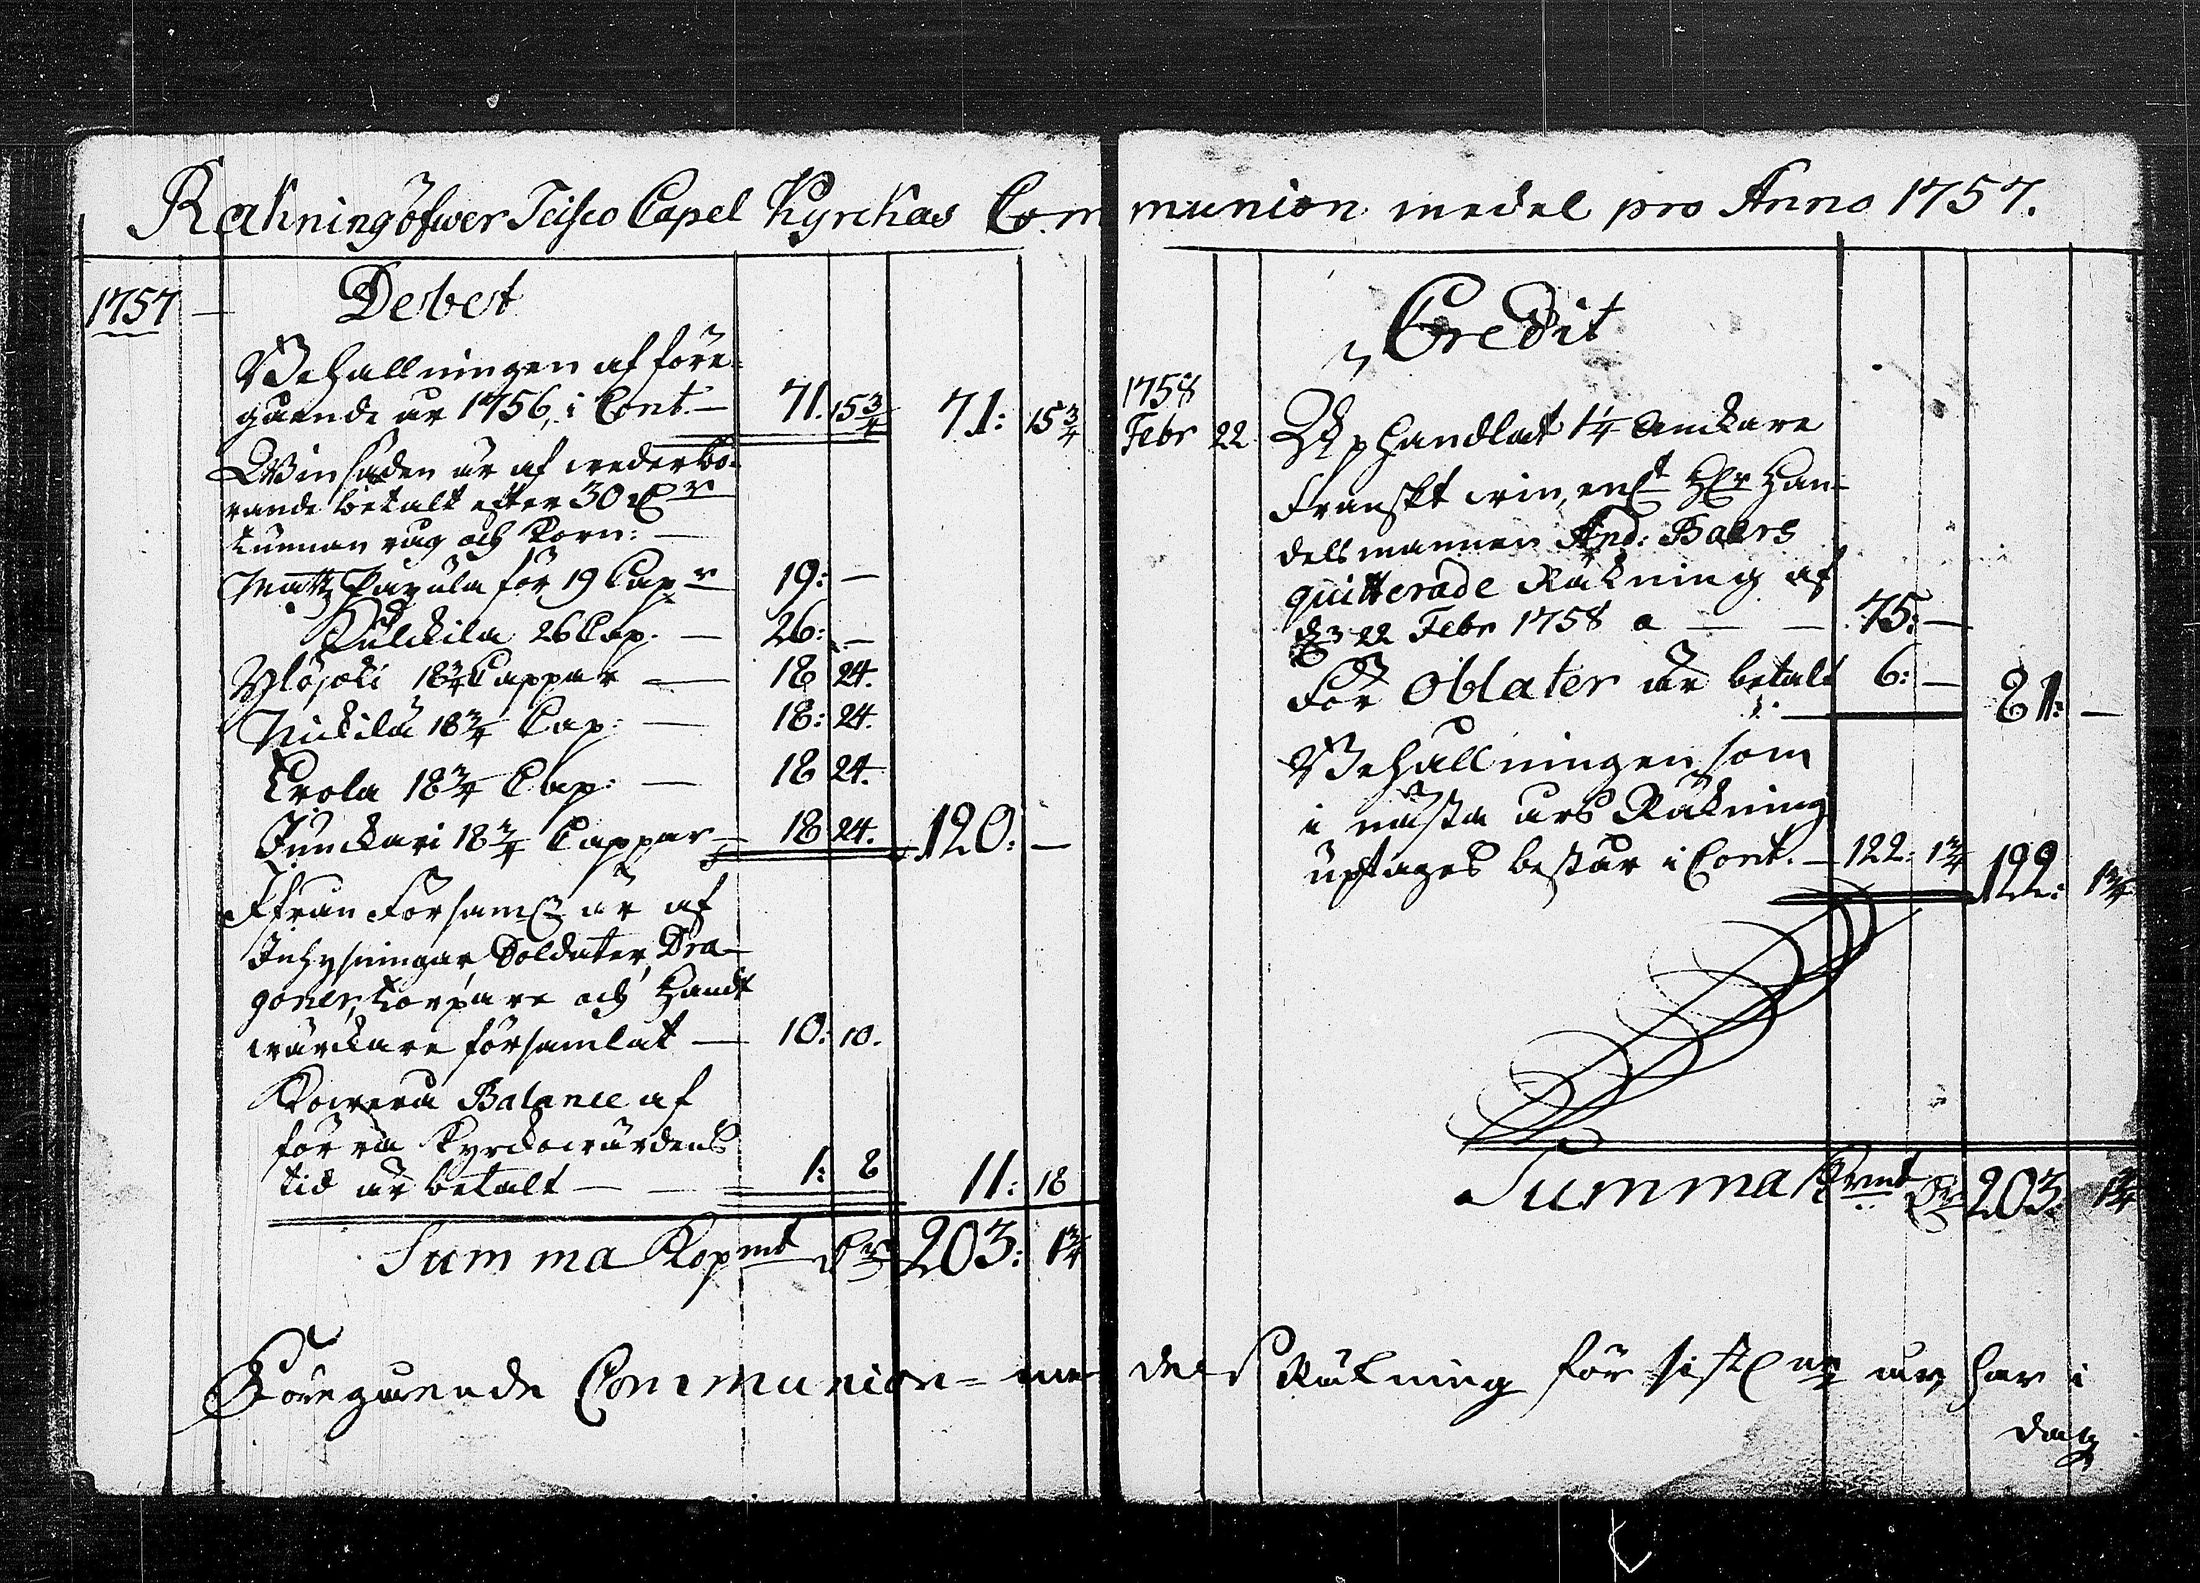 Räkning öfwer Teisco Capel Kyrckas Communion medel pro Anno 1757.
1757 — Debet
Behållningen af före-
gående år 1756, i Cont. — 71. 15¾ 71: 15¾
Winsäden är af wederbö-
rande betalt efter 30
tunnan råg och Korn: —
Matts Pavula för 19 Capr 19: —
Kulckila 26 Cap. — 26: —
Ylöjoki 18¾ Cappar — 18 24.
Nickilä 18¾ Cap: — 18: 24.
Erola 18¾ Cap: — 18 24.
Junckari 18¾ Cappar — 18 24. 120: —
Ifrån Församl är af
Inhysningar, Soldater, Dra-
goner, torpare och Handt
wärckare församlat — 10: 10.
Balance af
förra Kyrckowärdens
tid är betalt — 1: 8 11: 18
Summa Kopmt Dr 203: 1¾
Credit
1758
Febr 22 handlat 1¼ Anckare
Franskt win, enl Hr Han-
delsmannen And: Baers
quitterade Räkning af
d 22 Febr 1758 a — 75: —
För Oblater är betalt 6: — 81: —
Behållningen som
i nästa års Räkning
uptages består i Cont. — 122: 1¾ 122: 1¾
Summa Kpmt Dr 203: 1¾
Föregående Communion-medels Räkning för sistl år, har i
dag